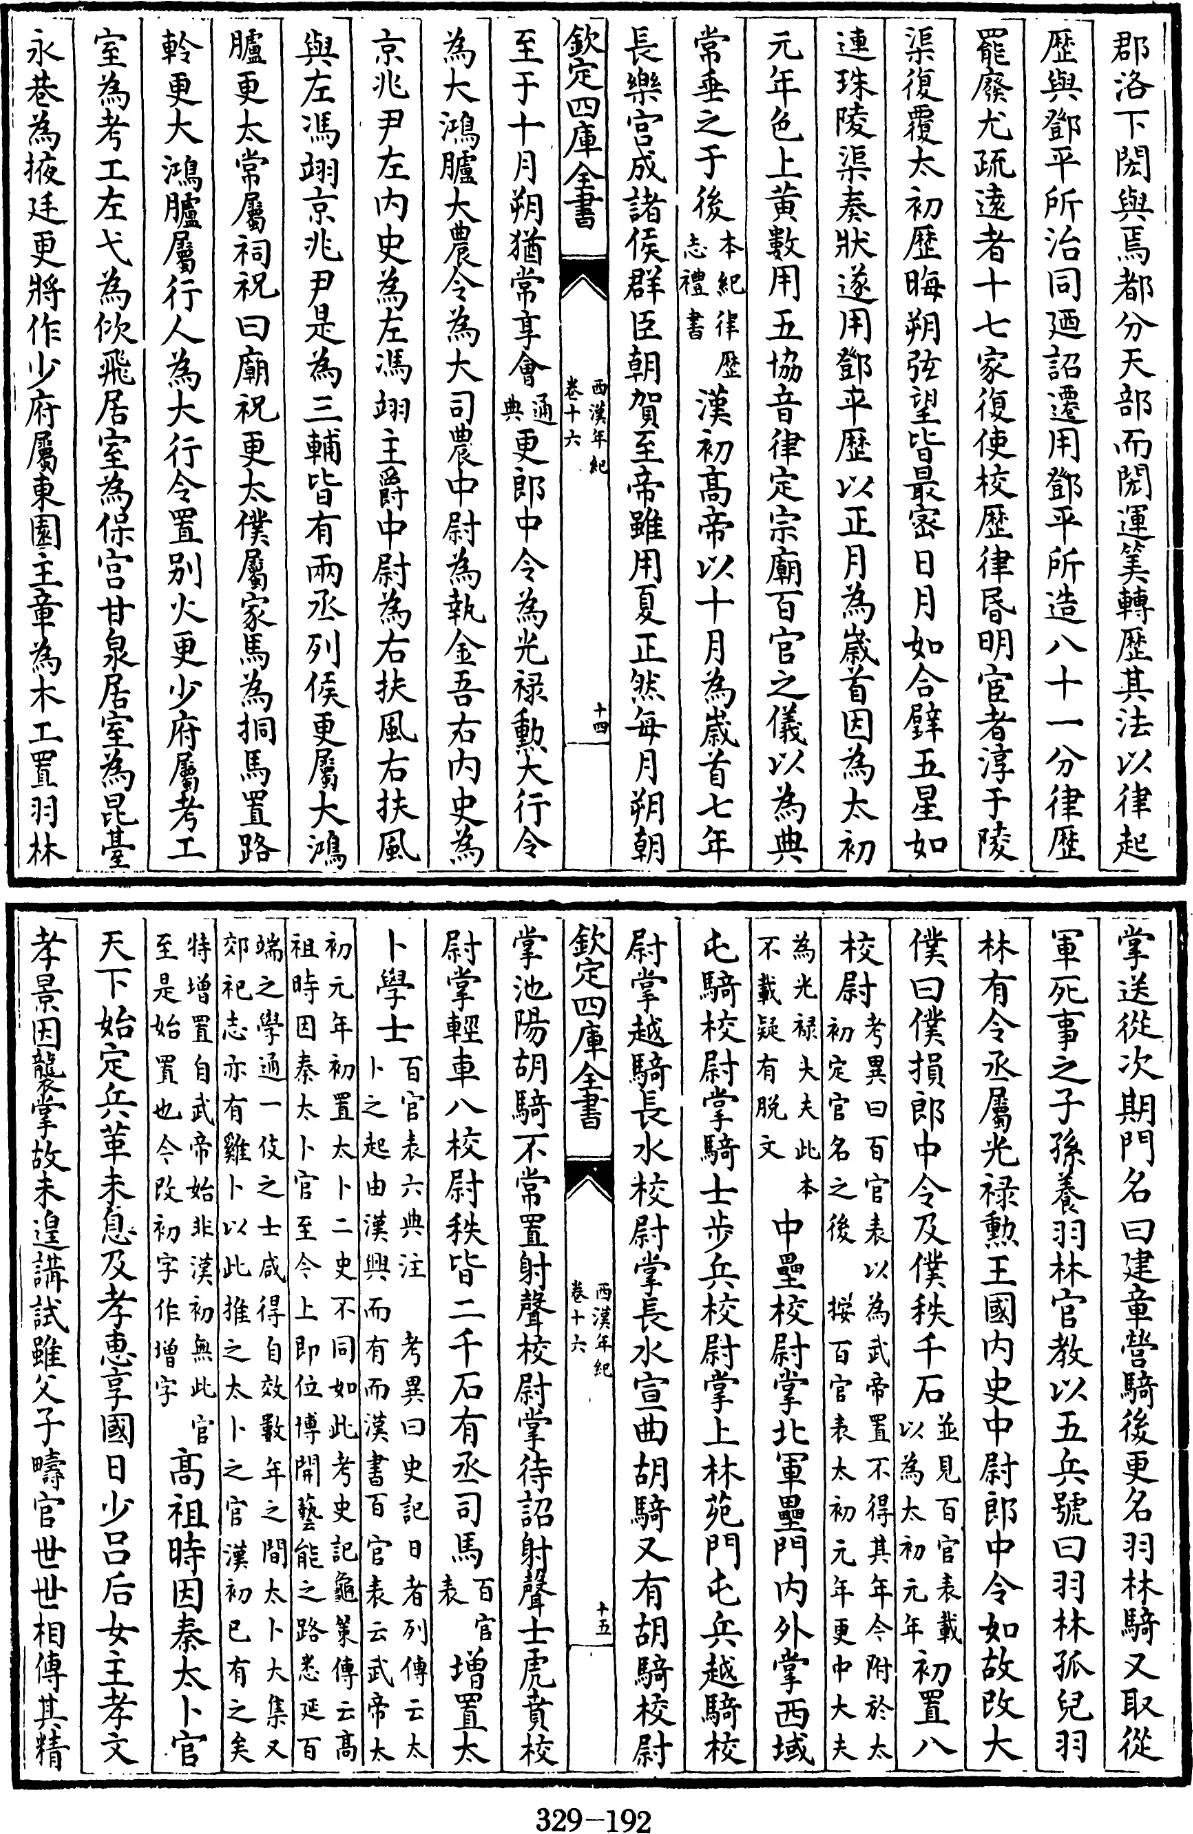 郡洛下閎與焉都分天部而閎運筭轉歴其法以律起
歴與鄧平所治同廼詔遷用鄧平所造八十一分律歴
罷廢尤疏遠者十七家復使校歴律昏明宦者淳于陵
渠復覆太初歴晦朔弦望皆最密日月如合璧五星如
連珠陵渠奏狀遂用鄧平歴以正月為嵗首因為太初
元年色上黄數用五協音律定宗廟百官之儀以為典
常垂之于後本紀律歴志禮書漢初髙帝以十月為嵗首七年
長樂宫成諸侯群臣朝賀至帝雖用夏正然每月朔朝
欽定四庫全書
西漢年紀
卷十六
十四
至于十月朔猶常享會通典更郎中令為光禄勲大行令
為大鴻臚大農令為大司農中尉為執金吾右内史為
京兆尹左内史為左馮翊主爵中尉為右扶風右扶風
與左馮翊京兆尹是為三輔皆有兩丞列侯更屬大鴻
臚更太常屬祠祝曰廟祝更太僕屬家馬為挏馬置路
軨更大鴻臚屬行人為大行令置别火更少府屬考工
室為考工左弋為佽飛居室為保宫甘泉居室為昆臺
永巷為掖廷更將作少府屬東園主章為木工置羽林
掌送從次期門名曰建章營騎後更名羽林騎又取從
軍死事之子孫養羽林官教以五兵號曰羽林孤兒羽
林有令丞屬光禄勲王國内史中尉郎中令如故改大
僕曰僕損郎中令及僕秩千石並見百官表載以為太初元年初置八
校尉考異曰百官表以為武帝置不得其年今附於太初定官名之後 按百官表太初元年更中大夫
為光禄大夫此本不載疑有脱文中壘校尉掌北軍壘門内外掌西域
屯騎校尉掌騎士步兵校尉掌上林苑門屯兵越騎校
尉掌越騎長水校尉掌長水宣曲胡騎又有胡騎校尉
欽定四庫全書
西漢年紀
卷十六
十五
掌池陽胡騎不常置射聲校尉掌待詔射聲士虎賁校
尉掌輕車八校尉秩皆二千石有丞司馬百官表増置太
卜學士百官表六典注 考異曰史記日者列傳云太卜之起由漢興而有而漢書百官表云武帝太
初元年初置太卜二史不同如此考史記龜策傳云髙祖時因秦太卜官至今上即位博開藝能之路悉延百
端之學通一伎之士咸得自效數年之間太卜大集又郊祀志亦有雞卜以此推之太卜之官漢初已有之矣
特増置自武帝始非漢初無此官至是始置也今改初字作増字髙祖時因秦太卜官
天下始定兵革未息及孝惠享國日少吕后女主孝文
孝景因襲掌故未遑講試雖父子疇官世世相傳其精
329-192